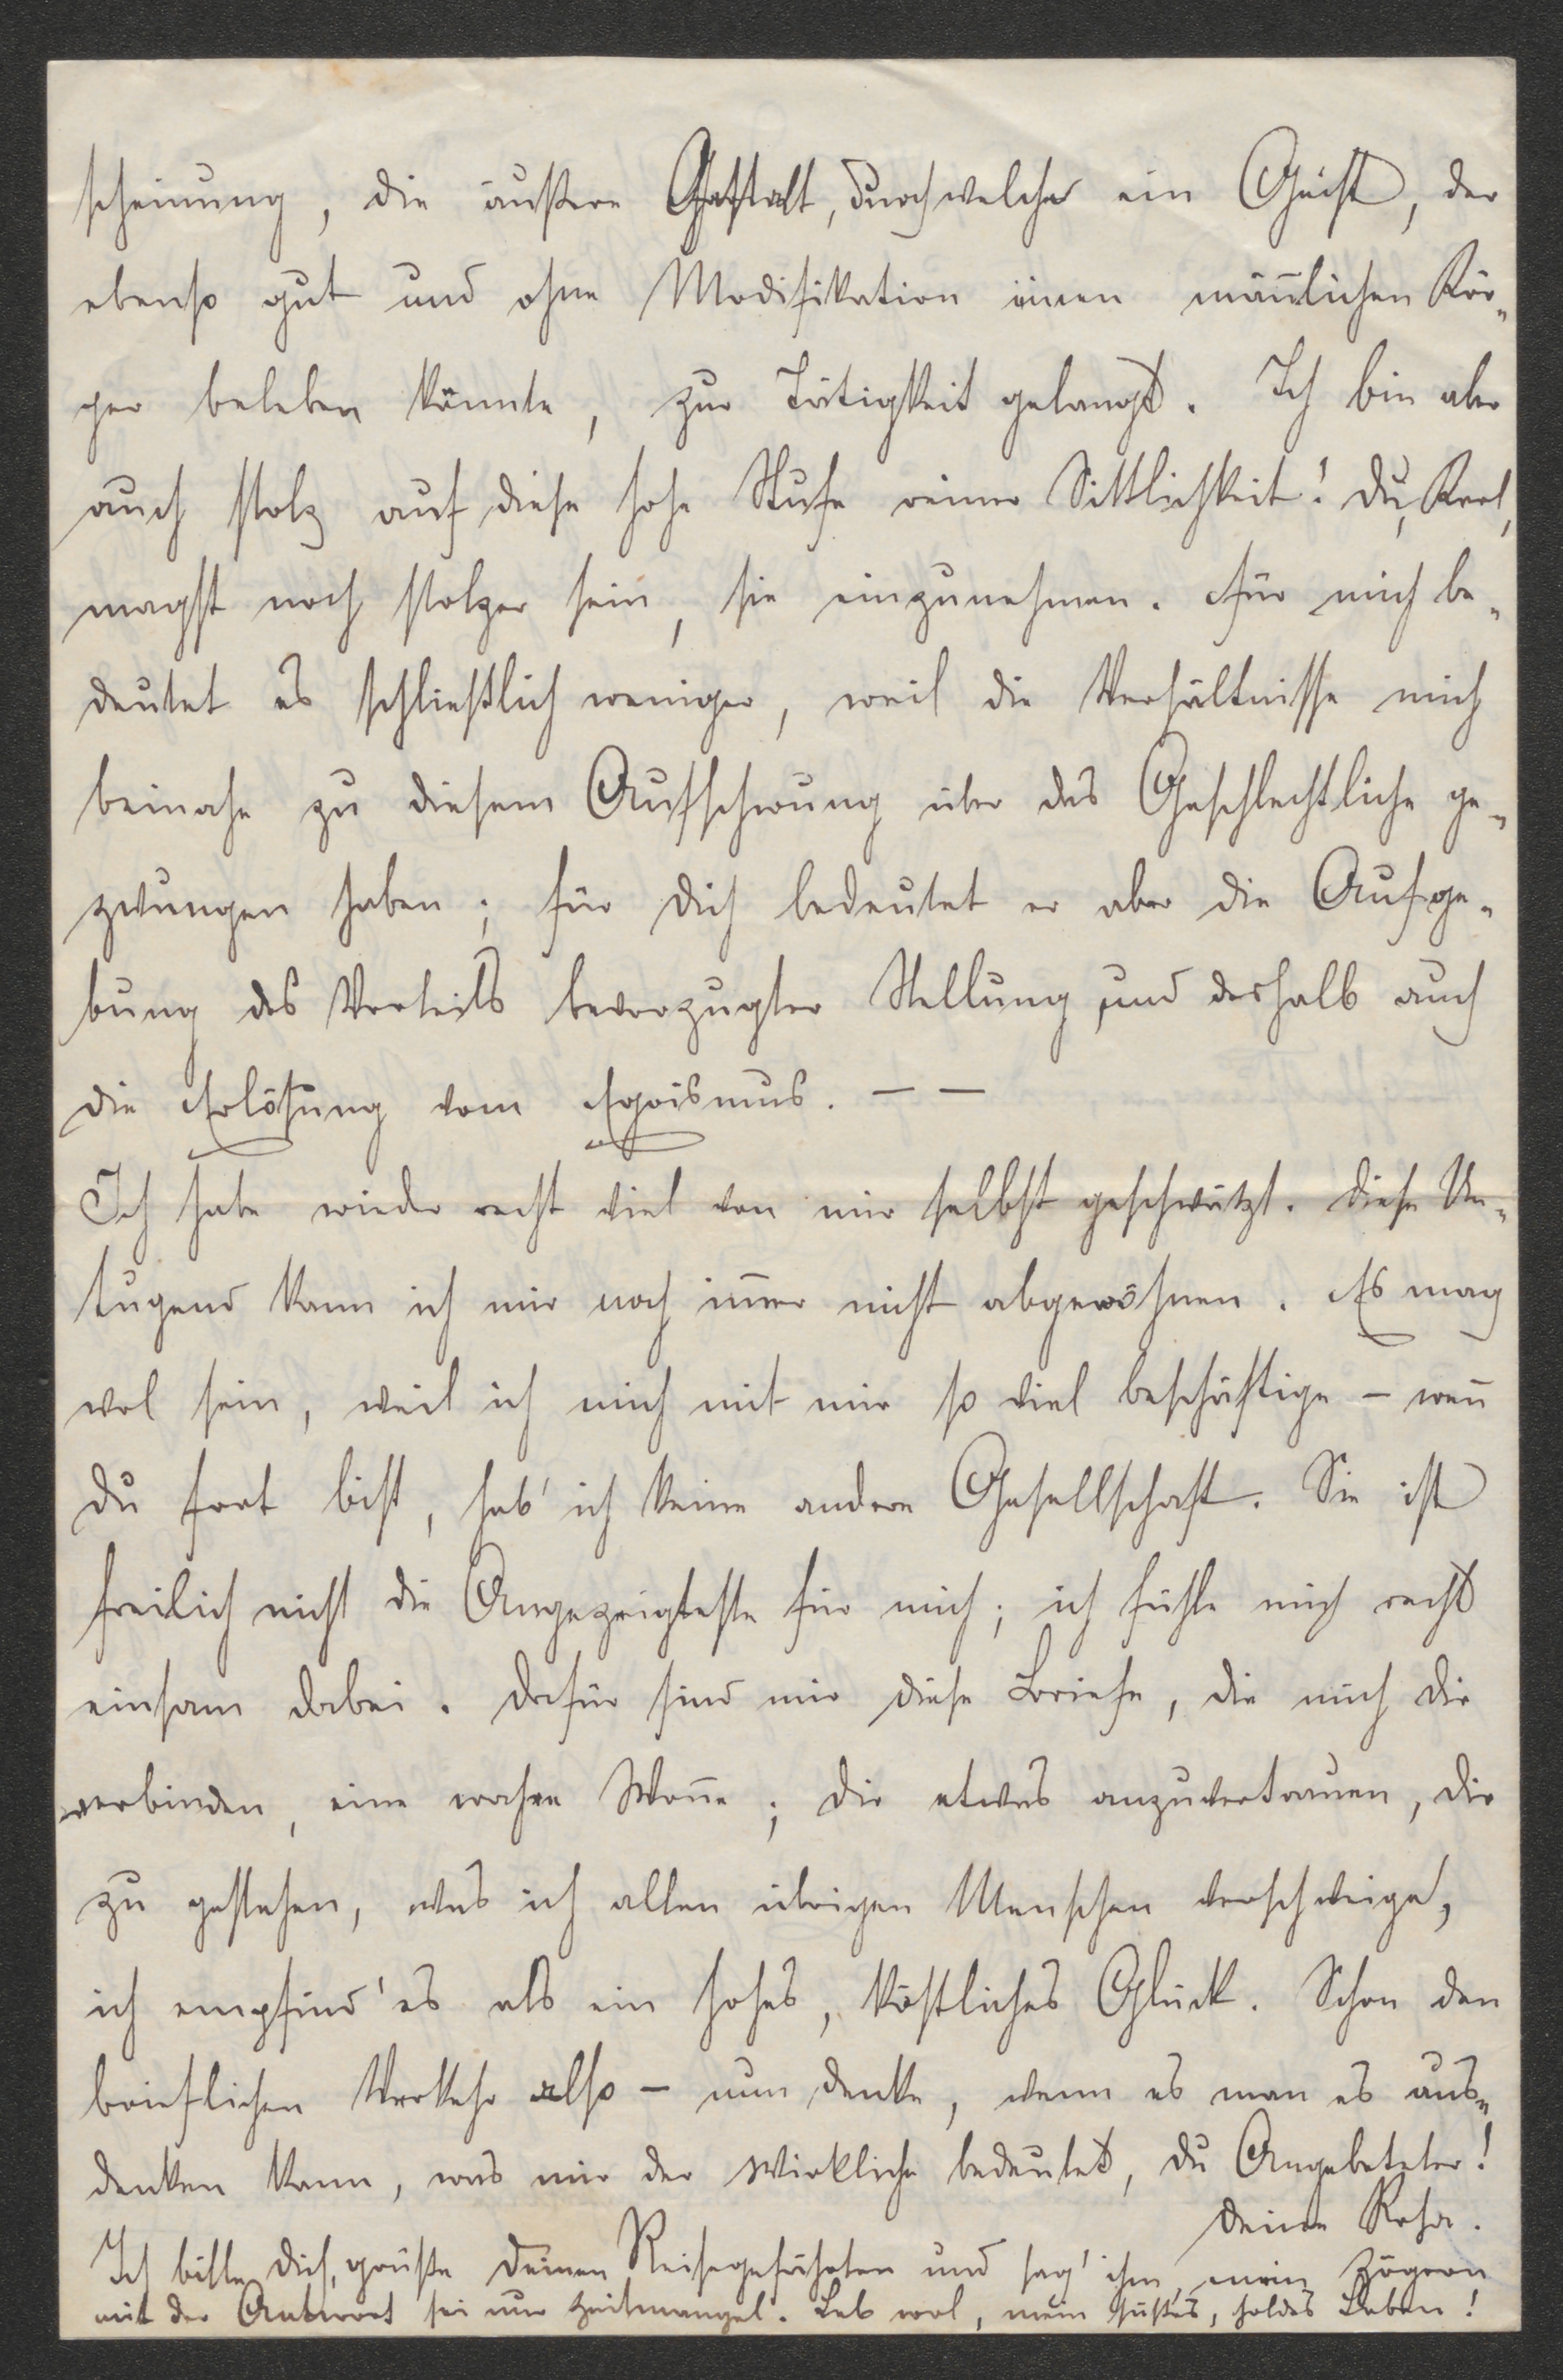 scheinung, die äußere Gestalt, durch welche ein Geist, der
ebenso gut und ohne Modifikation einen mäñlichen Kör-
per beleben könnte, zur Tätigkeit gelangt. Ich bin aber
auch stolz auf diese hohe Stufe reiner Sittlichkeit! Du, Karl,
magst noch stolzer sein, sie einzunehmen. Für mich be-
deutet es schließlich weniger, weil die Verhältnisse mich
beinahe zu diesem Aufschwung über das Geschlechtliche ge-
zwungen haben; für dich bedeutet er aber die Aufge-
bung des Vorteils bevorzugter Stellung und deshalb auch
die Erlösung vom Egoismus. — —
Ich habe wieder recht viel von mir selbst geschwätzt. Diese Un-
tugend kann ich mir noch im̄er nicht abgewöhnen. Es mag
wol sein, weil ich mich mit mir so viel beschäftige – weñ
du fort bist, hab' ich keine andere Gesellschaft. Sie ist
freilich nicht die Angezeigteste für mich; ich fühle mich recht
einsam dabei. Dafür sind mir diese Briefe, die mich dir
verbinden, eine wahre Woñe; dir etwas anzuvertrauen, dir
zu gestehen, was ich allen übrigen Menschen verschweige,
ich empfind' es als ein hohes, köstliches Glück. Schon den
brieflichen Verkehr also – nun denke, wenn es man es aus-
denken kann, was mir der wirkliche bedeutet, du Angebeteter!
Deine Rosa.
Ich bitte dich, grüße deinen Reisegefährten und sag' ihm, mein Zögern
mit der Antwort sei nur Zeitmangel. Leb wol, mein süßes, holdes Leben!